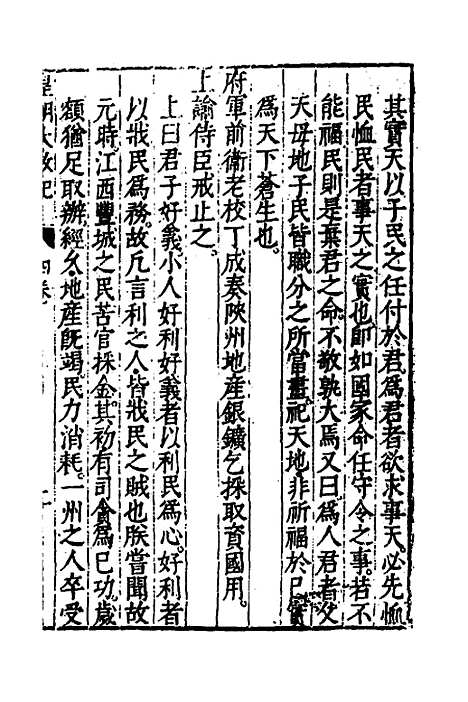 其實天以子民之任付於君爲君者欲求事天必先恤
民恤民者事天之實也即如國家命任守令之事若不
能福民則是棄君之命不敬孰大焉又曰爲人君者父
天母地子民皆職分之所當盡祀天地非祈福於己實
爲天下蒼生也
府軍前衛老校丁成奏陝州地産銀鑛乞採取資國用
上諭侍臣戒止之
上曰君子好義小人好利好義者以利民爲心好利者
以戕民爲務故凡言利之人皆戕民之賊也朕嘗聞故
元時江西豐城之民苦官採金其初有司貪爲己功歳
額猶足取辦經久地産既竭民力消耗一州之人卒受
皇明大政記 四卷